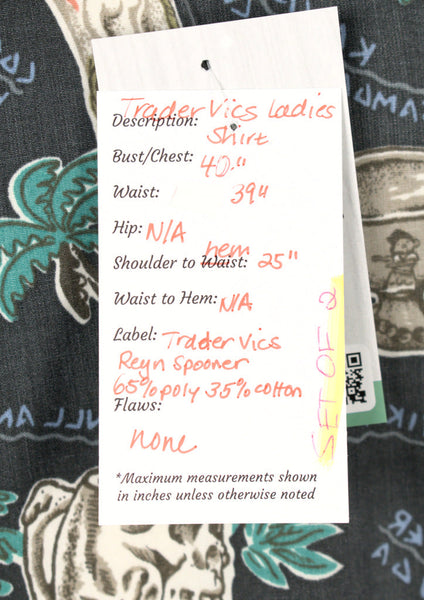 Trader Vics Ladies
Description:
Shirt
Bust/Chest: 40"
Waist: 39"
Hip: N/A
hem
Shoulder to Waist: 25"
Waist to Hem: N/A
Label: Trader Vics
Reyn Spooner
65% poly 35% cotton
Flaws:
none
*Maximum measurements shown
in inches unless otherwise noted
SET OF 2